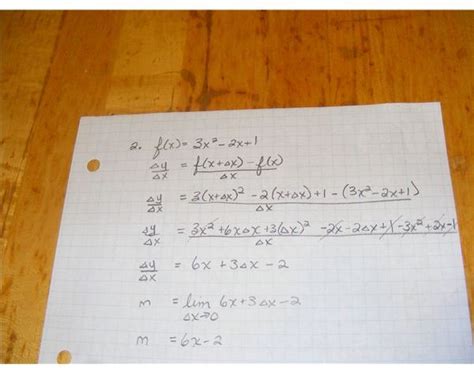 2. f(x) = 3x² - 2x + 1
Δy/Δx = f(x+Δx) - f(x)/Δx
Δy/Δx = 3(x+Δx)² - 2(x+Δx) + 1 - (3x² - 2x + 1)/Δx
Δy/Δx = 3x² + 6xΔx + 3(Δx)² - 2x - 2Δx + 1 - 3x² + 2x - 1/Δx
Δy/Δx = 6x + 3Δx - 2
m = lim Δx→0 6x + 3Δx - 2
m = 6x - 2